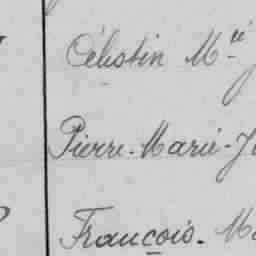 Célestin M^ie
Pierre-Marie-J
François-Ma